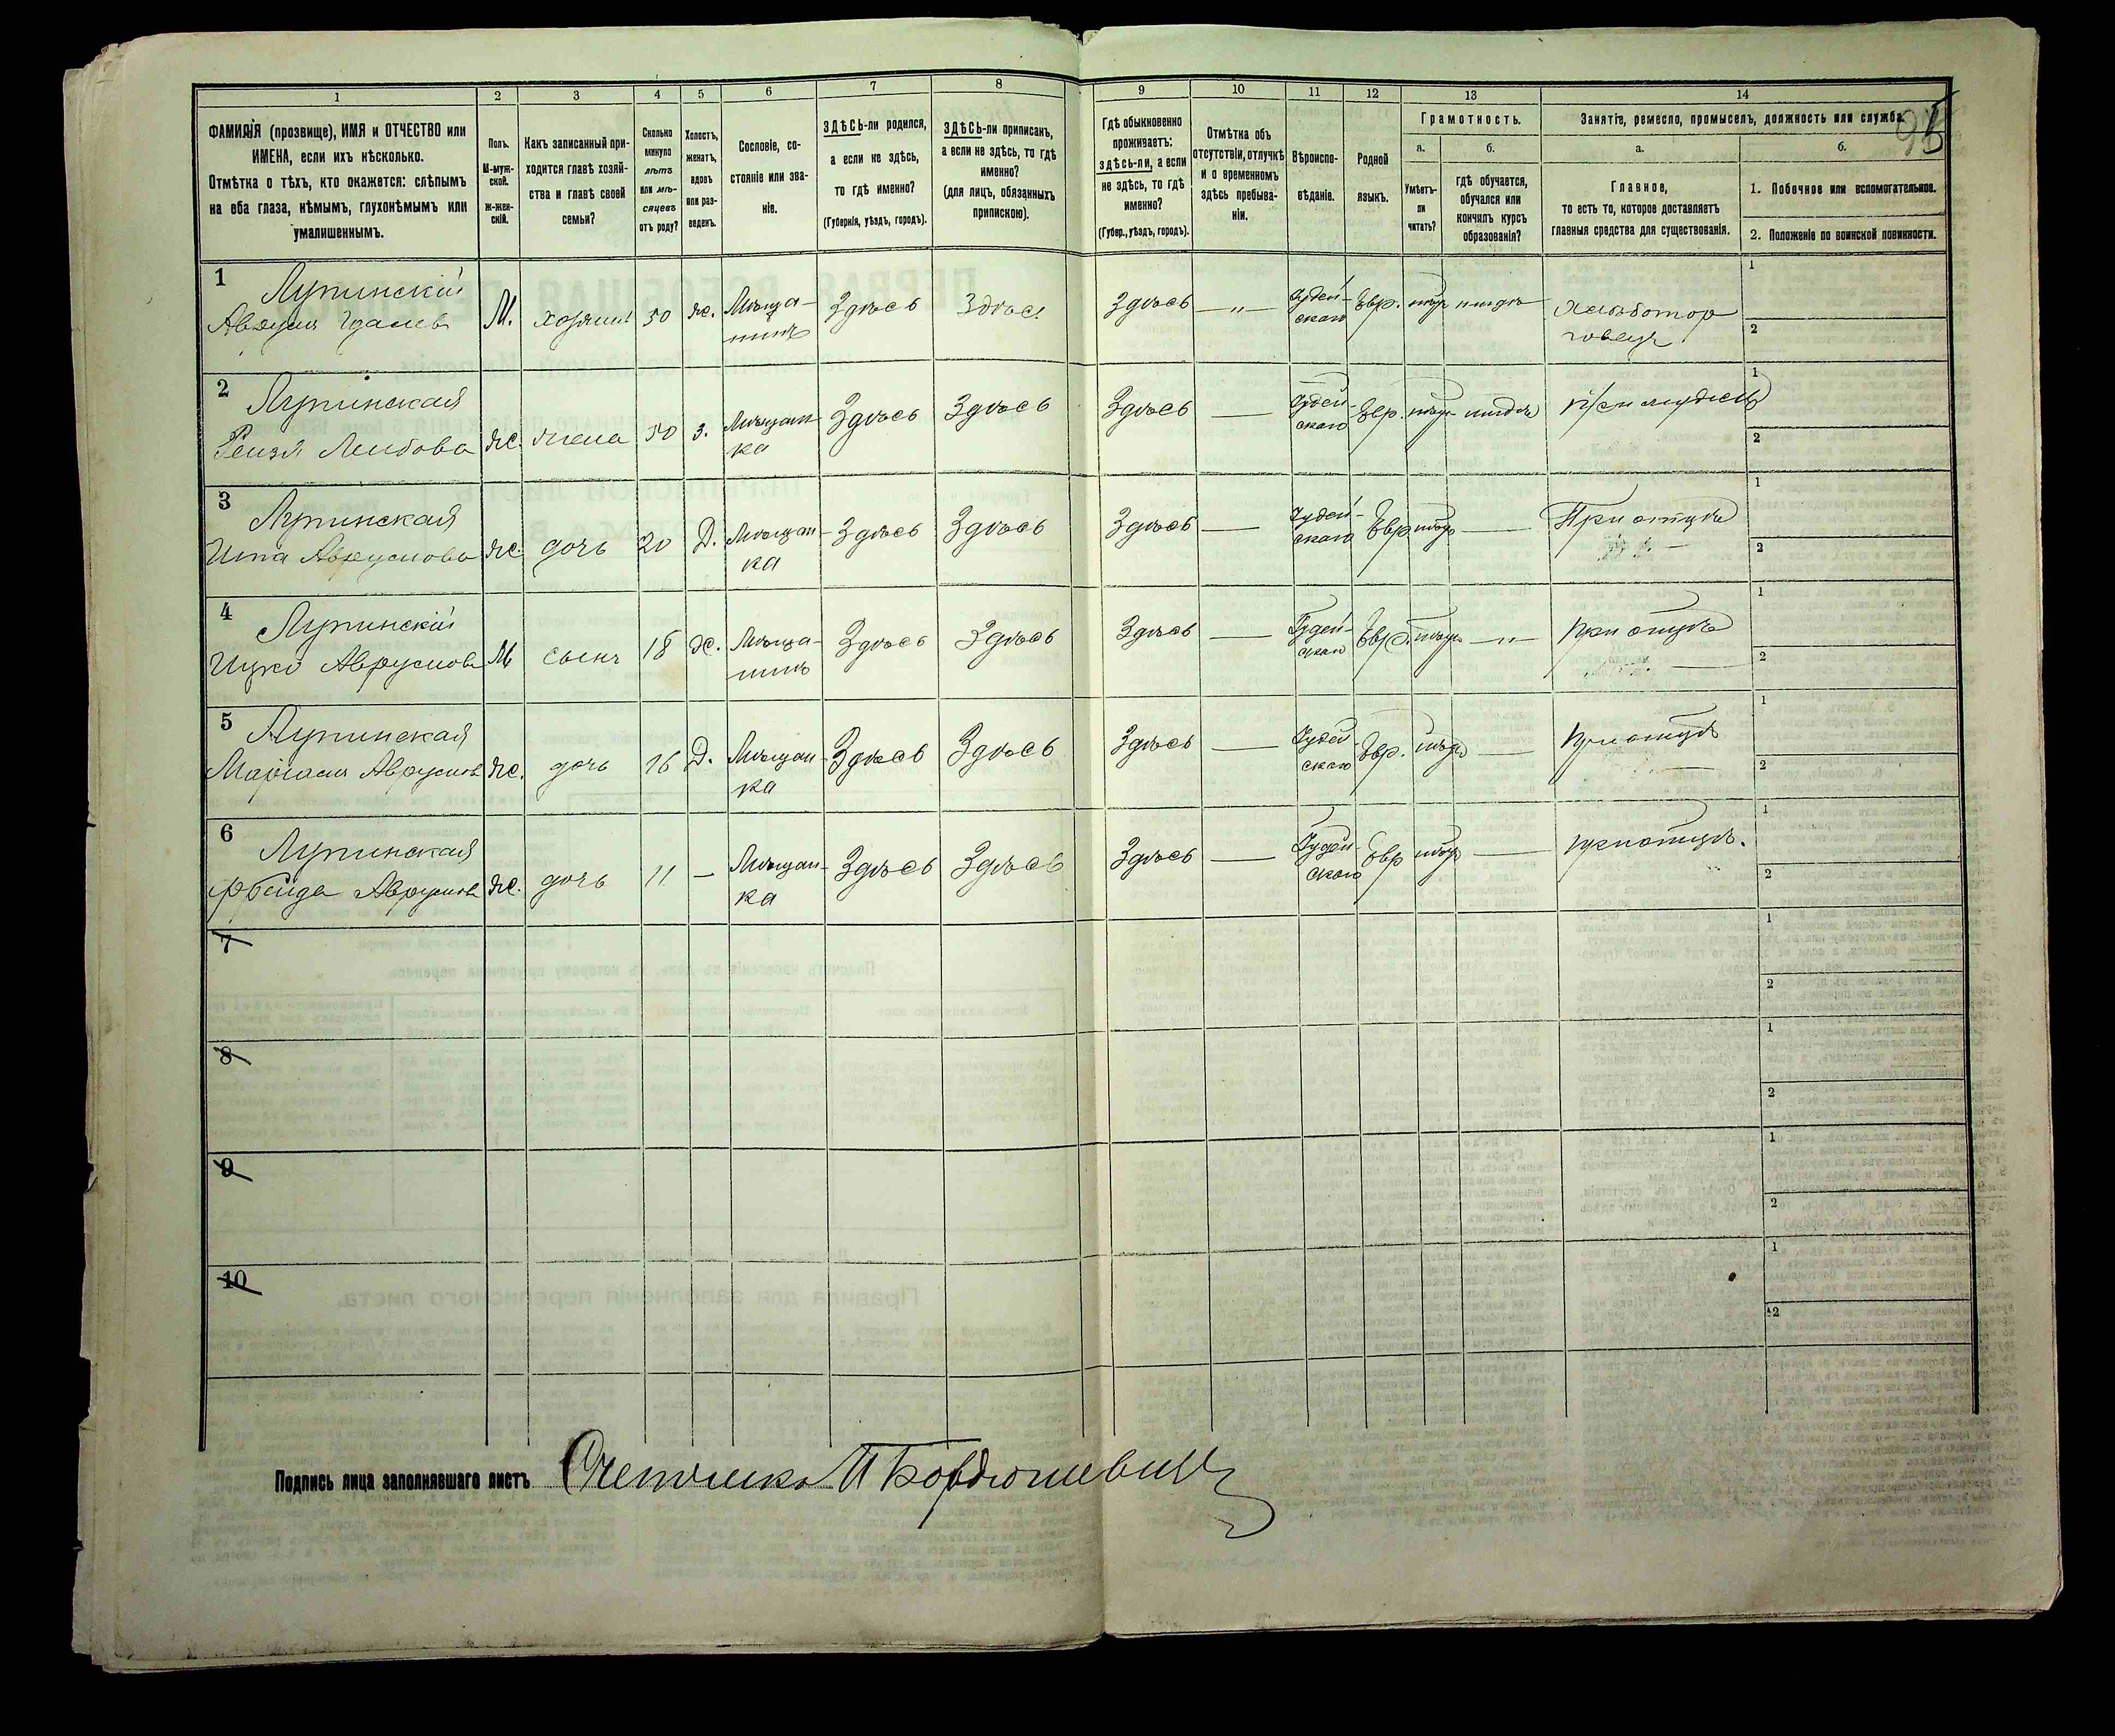 1 2 3 4 5 6 7 8 9 10 11 12 13 14
ФАМИЛІЯ (прозвище), ИМЯ и ОТЧЕСТВО или
ИМЕНА, если ихъ нѣсколько.
Отмѣтка о тѣхъ, кто окажется: слѣпымъ
на оба глаза, нѣмымъ, глухонѣмымъ или
умалишеннымъ.
Полъ.
М-муж-
ской.
ж-жен-
скій.
Какъ записанный при-
ходится главѣ хозяй-
ства и главѣ своей
семьи?
Сколько
минуло
лѣтъ
или мѣ-
сяцевъ
отъ роду?
Холостъ,
женатъ,
вдовъ
или раз-
веденъ.
Сословіе, со-
стояніе или зва-
ніе.
ЗДѢСЬ-ли родился,
а если не здѣсь,
то гдѣ именно?
(Губернія, уѣздъ, городъ).
ЗДѢСЬ-ли приписанъ,
а если не здѣсь, то гдѣ
именно?
(для лицъ, обязанныхъ
припискою).
Гдѣ обыкновенно
проживаетъ:
здѣсь-ли, а если
не здѣсь, то гдѣ
именно?
(Губер., уѣздъ, городъ).
Отмѣтка объ
отсутствіи, отлучкѣ
и о временномъ
здѣсь пребыва-
ніи.
Вѣроиспо-
вѣданіе.
Родной
языкъ.
Грамотность.
а.
Умѣетъ-
ли
читать?
б.
гдѣ обучается,
обучался или
кончилъ курсъ
образованія?
Занятіе, ремесло, промыселъ, должность или служба.
а.
Главное,
то есть то, которое доставляетъ
главныя средства для существованія.
б.
1. Побочное или вспомогательное.
2. Положеніе по воинской повинности.
1 Лупинскій
М. хозяинъ 50 ж. Мѣща-
нинъ Здѣсь Здѣсь Здѣсь — „ — Іудей-
скаго Евр.
Хлѣботор
говецъ
1
2
2 Лупинская
Лейбова ж. жена 50 з. Мѣщан-
ка Здѣсь Здѣсь Здѣсь — Іудей-
скаго Евр.
1
2
3 Лупинская
ж. дочь 20 Д. Мѣщан-
ка Здѣсь Здѣсь Здѣсь — Іудей-
скаго Евр — При отцѣ
1
2
4 Лупинскій
Ицко М сынъ 18 х. Мѣща-
нинъ Здѣсь Здѣсь Здѣсь — Іудей-
скаго Евр. — „ при отцѣ
1
2
5 Лупинская
ж. дочь 16 Д. Мѣщан-
ка Здѣсь Здѣсь Здѣсь — Іудей-
скаго Евр. — при отцѣ
1
2
6 Лупинская
ж. дочь 11 — Мѣщан-
ка Здѣсь Здѣсь Здѣсь — Іудей-
скаго Евр — при отцѣ.
1
2
7
1
2
8
1
2
9
1
2
10
1
2
Подпись лица заполнявшаго листъ Счетчикъ